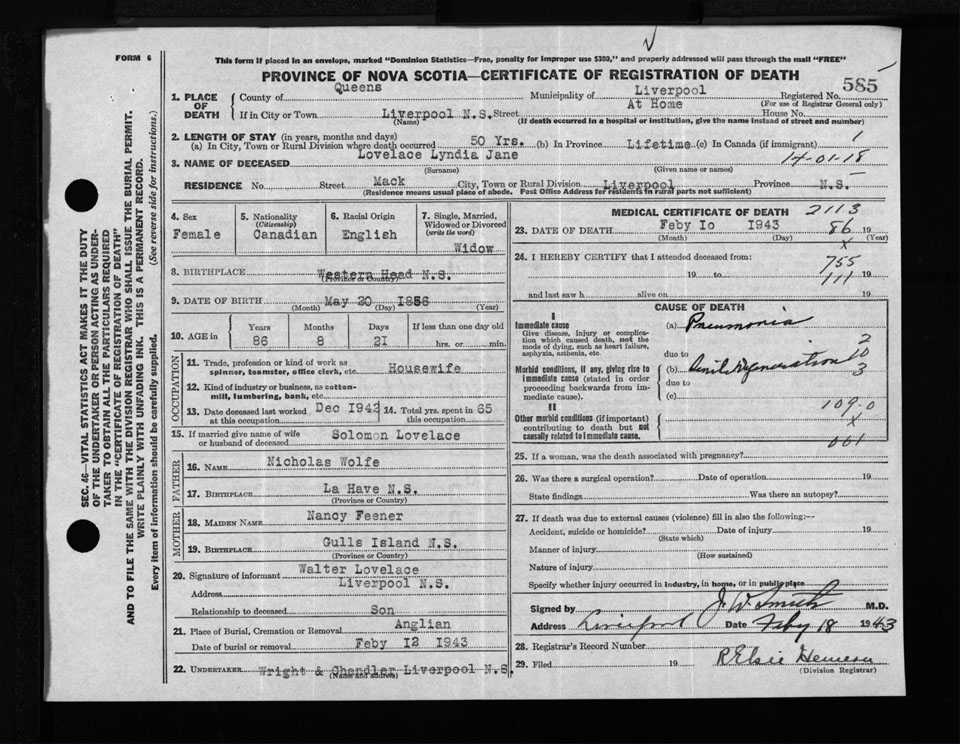 FORM 6
This form if placed in an envelope, marked "Dominion Statistics—Free, penalty for improper use $300," and properly addressed will pass through the mail "FREE"
PROVINCE OF NOVA SCOTIA—CERTIFICATE OF REGISTRATION OF DEATH
585
1. PLACE OF DEATH
County of Queens Municipality of Liverpool Registered No.
At Home (For use of Registrar General only)
If in City or Town Liverpool N.S. Street House No.
(Name) (If death occurred in a hospital or institution, give the name instead of street and number)
2. LENGTH OF STAY (in years, months and days)
(a) In City, Town or Rural Division where death occurred 50 Yrs. (b) In Province Lifetime (c) In Canada (if immigrant)
3. NAME OF DECEASED Lovelace Lyndia Jane 14-01-18
(Surname) (Given name or names)
RESIDENCE No. Street Mack City, Town or Rural Division Liverpool Province N.S.
(Residence means usual place of abode. Post Office Address for residents in rural parts not sufficient)
4. Sex
Female
5. Nationality
(Citizenship)
Canadian
6. Racial Origin
English
7. Single, Married,
Widowed or Divorced
(write the word)
Widow
8. BIRTHPLACE Western Head N.S.
(Province or Country)
9. DATE OF BIRTH May 20 1856
(Month) (Day) (Year)
10. AGE in
Years Months Days If less than one day old
86 8 21 hrs. or min.
OCCUPATION
11. Trade, profession or kind of work as
spinner, teamster, office clerk, etc. Housewife
12. Kind of industry or business, as cotton-
mill, lumbering, bank, etc.
13. Date deceased last worked Dec 1942
at this occupation
14. Total yrs. spent in 65
this occupation
15. If married give name of wife
or husband of deceased Solomon Lovelace
FATHER
16. NAME Nicholas Wolfe
17. BIRTHPLACE La Have N.S.
(Province or Country)
MOTHER
18. MAIDEN NAME Nancy Feener
19. BIRTHPLACE Gulls Island N.S.
(Province or Country)
20. Signature of informant Walter Lovelace
Address Liverpool N.S.
Relationship to deceased Son
21. Place of Burial, Cremation or Removal Anglian
Date of burial or removal Feby 12 1943
22. UNDERTAKER Wright & Chandler Liverpool N.S.
(Name and address)
MEDICAL CERTIFICATE OF DEATH 2113
23. DATE OF DEATH Feby Io 1943 86 19
(Month) (Day) (Year)
x
24. I HEREBY CERTIFY that I attended deceased from:
755
19 to 19
111
and last saw h alive on 19
CAUSE OF DEATH
I
Immediate cause
Give disease, injury or complica-
tion which caused death, not the
mode of dying, such as heart failure,
asphyxia, asthenia, etc.
(a) Pneumonia
due to
2
Morbid conditions, if any, giving rise to
immediate cause (stated in order
proceeding backwards from im-
mediate cause).
(b) Senile Degeneration
0
3
due to
(c)
109-0
II
Other morbid conditions (if important)
contributing to death but not
causally related to immediate cause.
x
001
25. If a woman, was the death associated with pregnancy?
26. Was there a surgical operation? Date of operation 19
State findings Was there an autopsy?
27. If death was due to external causes (violence) fill in also the following:—
Accident, suicide or homicide? Date of injury 19
(State which)
Manner of injury
(How sustained)
Nature of injury
Specify whether injury occurred in industry, in home, or in public place
Signed by J. W. Smith M.D.
Address Liverpool Date Feby 18 1943
28. Registrar's Record Number
29. Filed 19 R Elsie
(Division Registrar)
SEC. 46—VITAL STATISTICS ACT MAKES IT THE DUTY
OF THE UNDERTAKER OR PERSON ACTING AS UNDER-
TAKER TO OBTAIN ALL THE PARTICULARS REQUIRED
IN THE "CERTIFICATE OF REGISTRATION OF DEATH"
AND TO FILE THE SAME WITH THE DIVISION REGISTRAR WHO SHALL ISSUE THE BURIAL PERMIT.
WRITE PLAINLY WITH UNFADING INK. THIS IS A PERMANENT RECORD.
Every item of information should be carefully supplied. (See reverse side for instructions.)